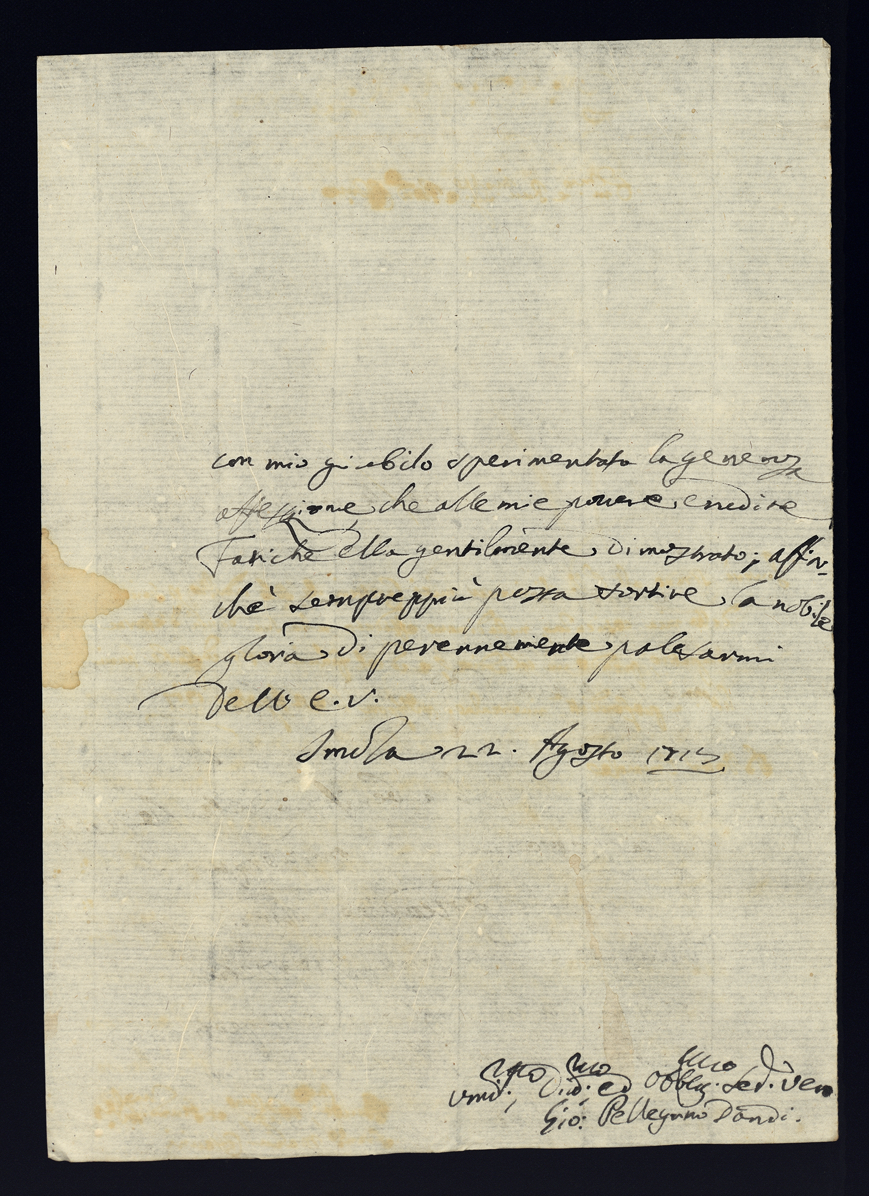 con mio giubilo sperimentata la generosa
affezzione, che alle mie povere, erudite
Fatiche ella gentilmente dimostrato; affin-
chè semprepppiù possa sortire la nobile
gloria di perennemente palesarmi
Dell' E. V.
Imola 22. Agosto
Umil.mo, Div.mo, ed Obblig.mo Sed. Vero
Gio: Pellegrino Dandi.